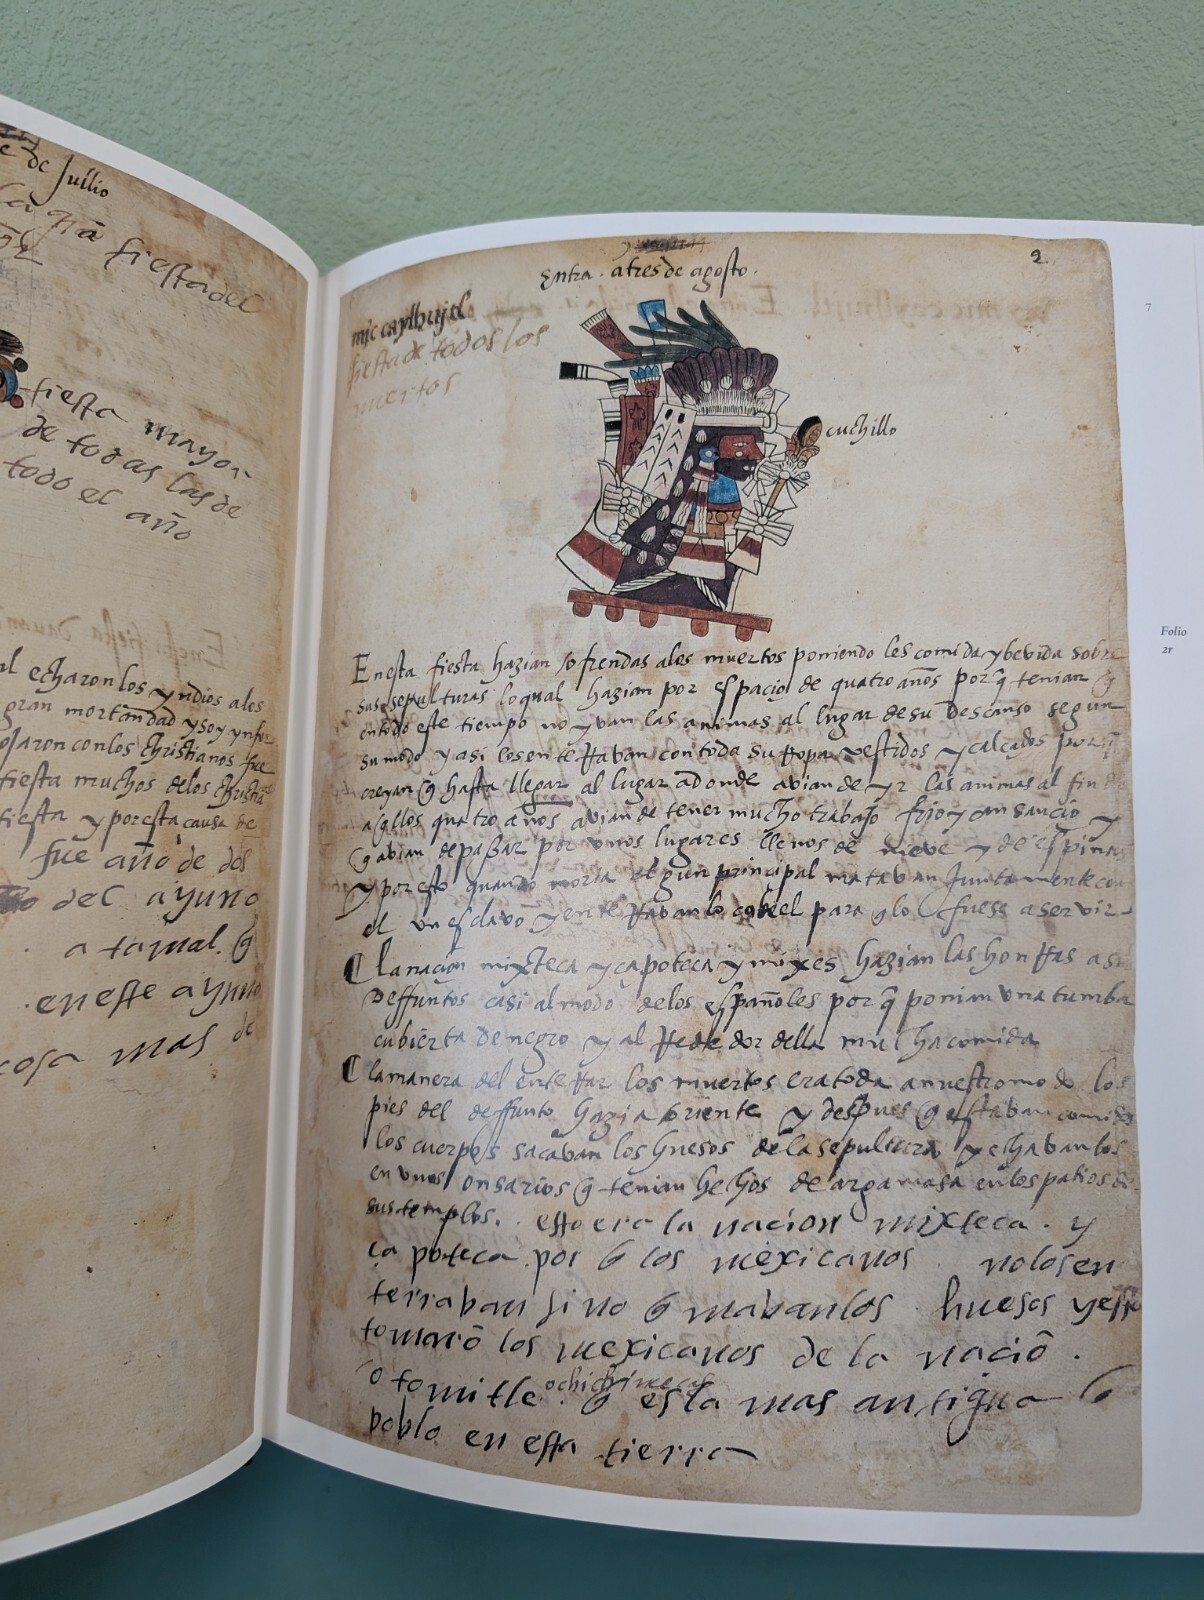 e de Julio
la grā fiesta del
fiesta mayor
de todas las de
todo el año
al echaron los yndios a los
gran mortandad y soy ynfor
con los christianos fue
fiesta muchos delos christia
fiesta y por esta causa de
fue año de dos
del ayuno
a tamal. q̄
en este ayuno
cosa mas de
Entra . a tres de agosto .
2
miccaylhuitl
fiesta de todos los
muertos
cuchillo
En esta fiesta hazian ofrendas a los muertos poniendo les comida y bevida sobre
sus sepulturas lo qual hazian por espacio de quatro años porq̄ tenian q̄
en todo este tiempo no yvan las animas al lugar de su descanso segun
su modo y asi los enterravan con toda su rropa vestidos y calçados porq̄
creyan q̄ hasta llegar al lugar adonde avian de yr las animas al fin
aqllos quatro años avian de tener mucho trabajo frio y cansancio y
q avian de pasar por unos lugares llenos de nieve y de espinas
y por esto quando moria algun principal matavan juntamente con
el un esclavo y enterravanlo con el para q lo fuese a servir
La nacion mixteca y çapoteca y mixes hazian las honrras a sus
deffuntos casi al modo de los españoles porq̄ ponian una tumba
cubierta de negro y al rrededor della mucha comida
La manera del enterrar los muertos era toda a nuestro modo los
pies del deffunto hazia oriente y despues q̄ estavan comidos
los cuerpos sacavan los huesos de la sepultura y echavanlos
en unos onsarios q̄ tenian hechos de argamasa en los patios de
sus templos. esto era la nacion mixteca . y
çapoteca por q̄ los mexicanos nolosen
terraban sino q̄ mavanlos huesos y esto
tomarō los mexicanos de la naciō .
otomitle o chichimecas q̄ es la mas antigua q̄
poblo en esta tierra
7
Folio
2r